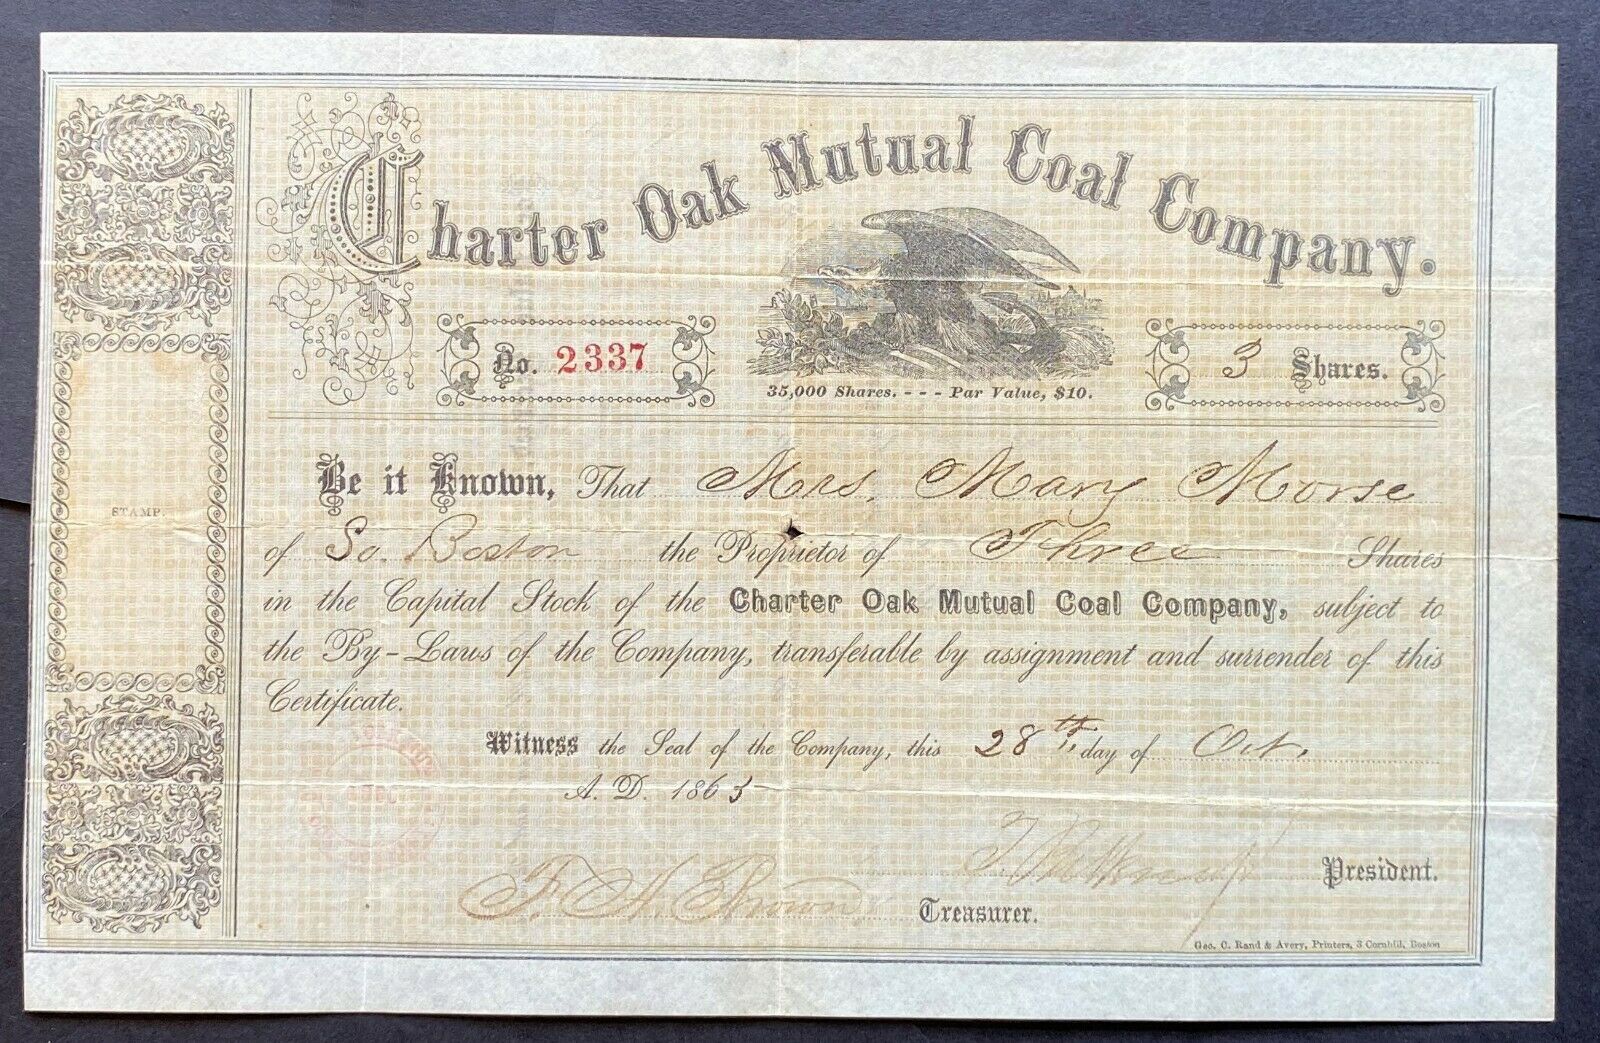 Charter Oak Mutual Coal Company.
No. 2337
35,000 Shares. - - - Par Value, $10.
3 Shares.
STAMP.
Be it Known, That Mrs. Mary Morse
of So. Boston the Proprietor of Three Shares
in the Capital Stock of the Charter Oak Mutual Coal Company, subject to
the By-Laws of the Company, transferable by assignment and surrender of this
Certificate.
Witness the Seal of the Company, this 28th day of Oct.
A.D. 1863
President.
F. A. Brown Treasurer.
Geo. C. Rand & Avery, Printers, 3 Cornhill, Boston